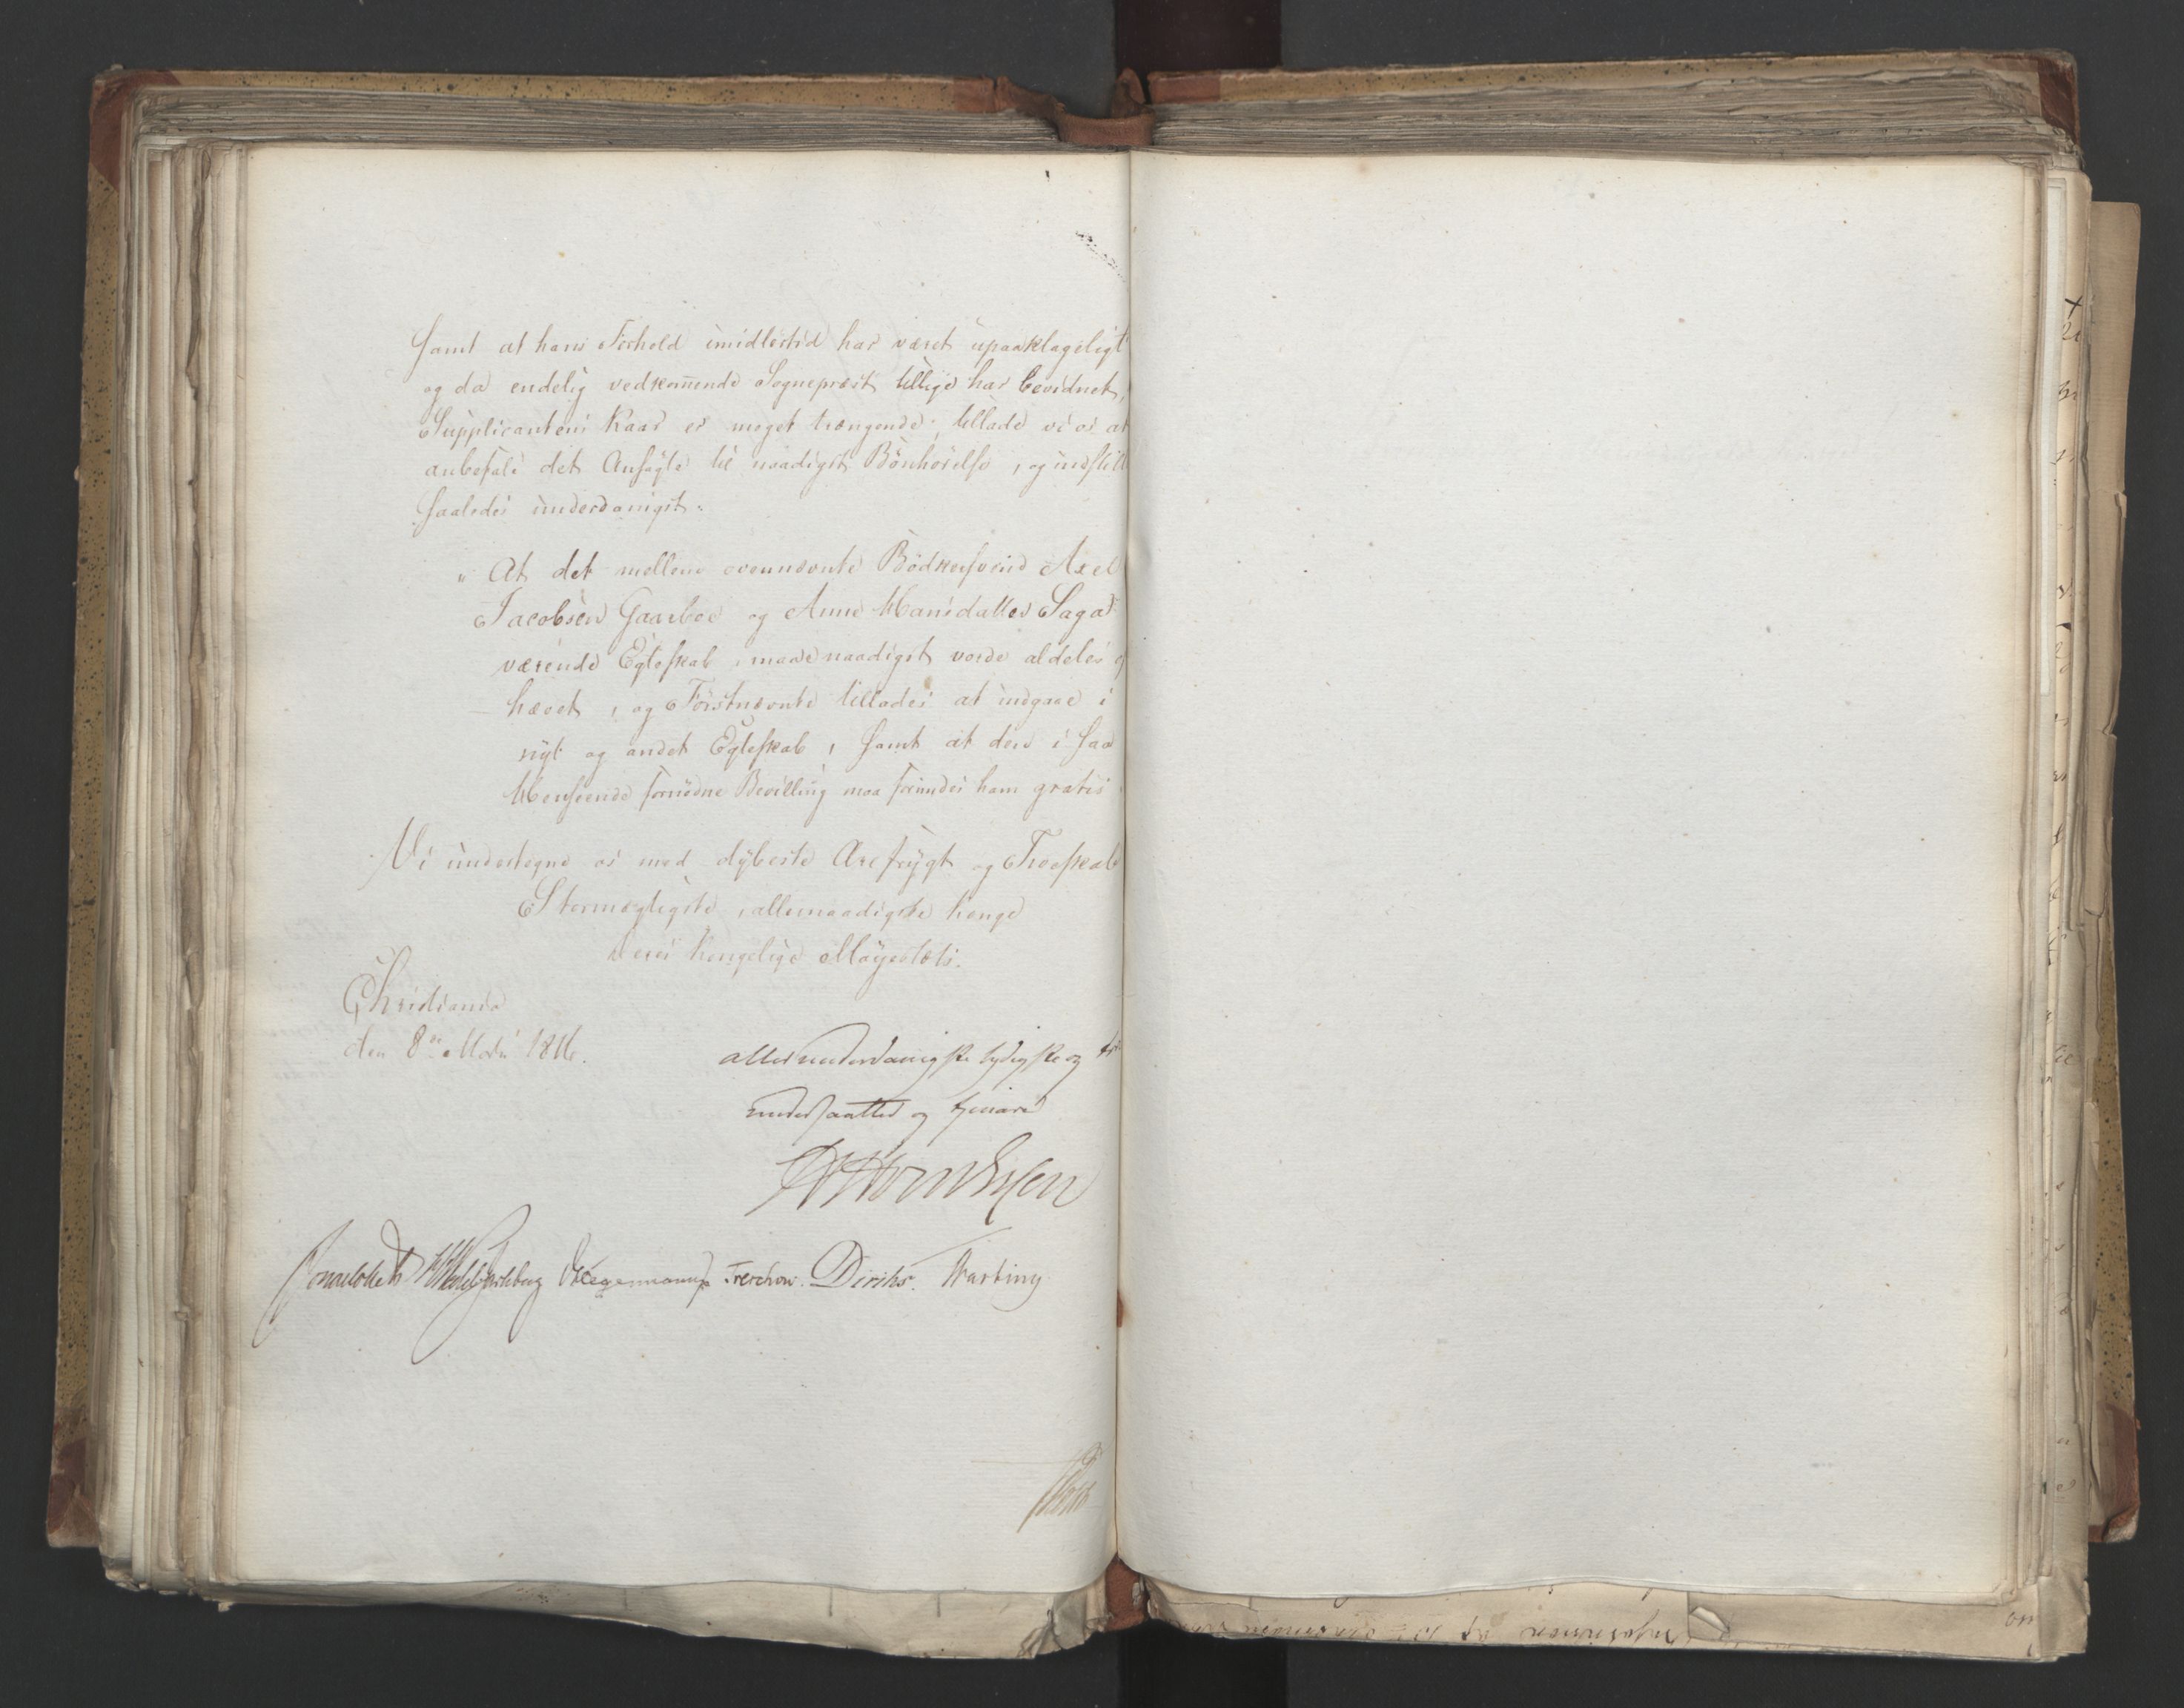 samt at hans Forhold imidlertid har været upaaklageligt
og da endelig vedkom̄ende Sognepræst tillige har bevidnet,
Supplicantens Kaar er meget trængende; tillade vi os at
anbefale det Ansøgte til naadigst Bönhörelse, og indstille
saaledes underdanigst:
"At det mellem ovennævnte Bödkersvend Axel
Jacobsen Gaarboe og Anne Hansdatter Saga
værende Egteskab, maae naadigst vorde aldeles op
hævet, og Förstnævnte tillades at indgaae i
nyt og andet Egteskab, samt at den i saa
Henseende fornödne Bevilling maa forundes ham gratis
Vi undertegne os med dybeste Ærefrygt og Troeskab
Stormægtigste, allernaadigste Konge
Deres Kongelige Mayestæts.
Christiania
den 8de Marti 1816.
allerunderdanigste lydigste og
undersaatter og tienere
Sommerhielm Wedel Jarlsberg Hegermann Treschow. Diriks. Hartwig